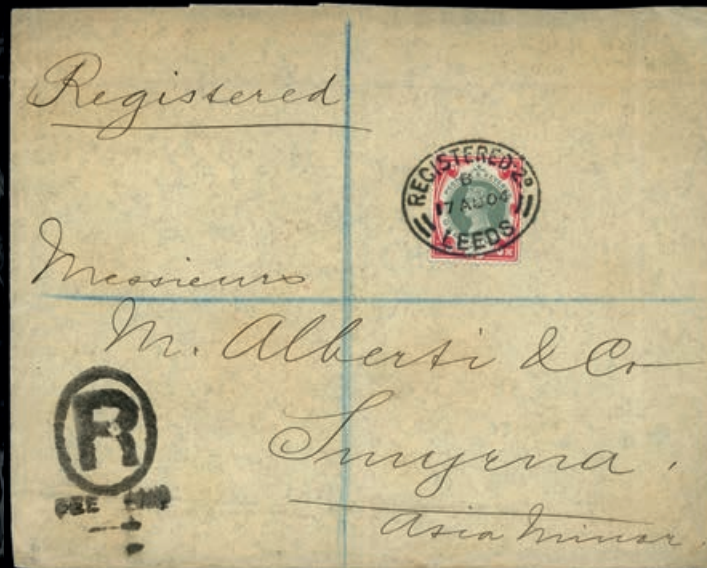 Registered
REGISTERED 2D
B
17 AU 06
LEEDS
Messieurs
M. Alberti & Co
Smyrna.
Asia Minor.
R
FEE